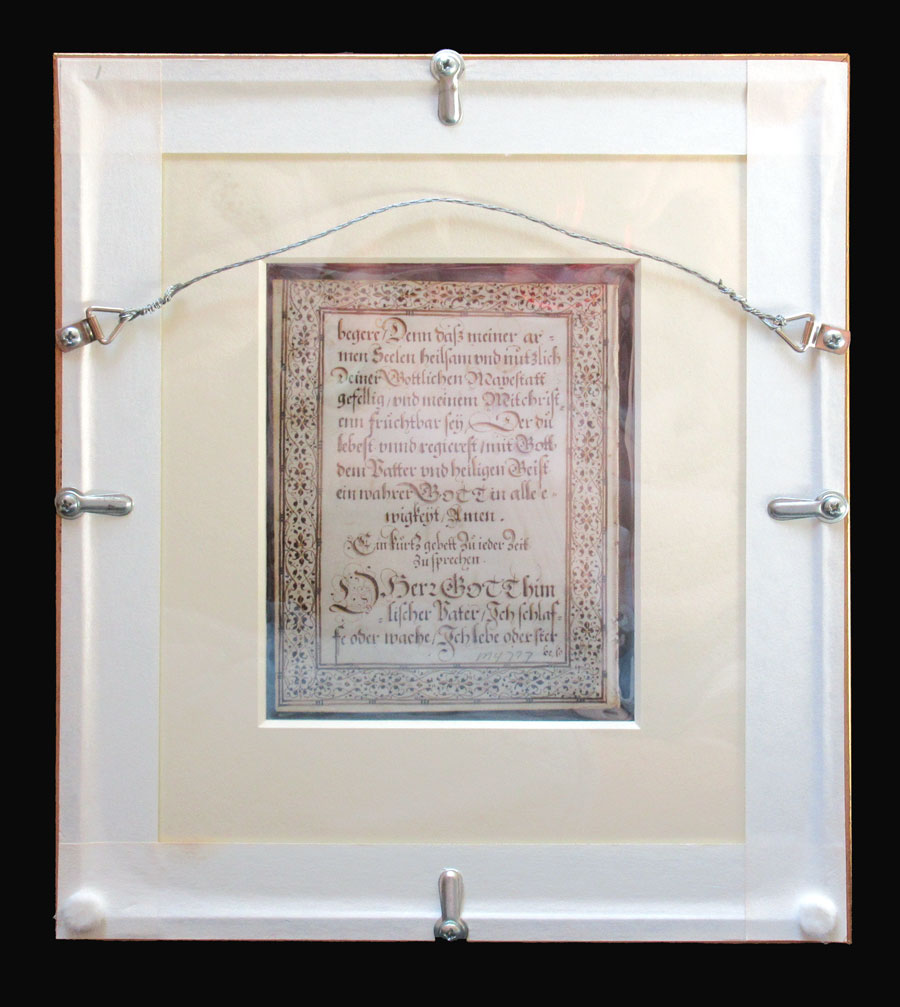 begere / Denn daß meiner ar-
men Seelen heilsam vnd nützlich
Deiner Göttlichen Mayestatt
gefellig / vnd meinem Mitchrist-
enn früchtbar sey / Der du
lebest vnnd regierest / mit Gott
dem Vatter vnd heiligen Geist
ein wahrer GOTT in alle e-
wigkeÿt / Amen.
Ein kurtz gebett zu ieder Zeit
Zu sprechen.
O HErr GOTT him
-lischer Vater / Ich schlaf-
fe oder wache / Ich lebe oder ster
be ꝛc
m4777
1